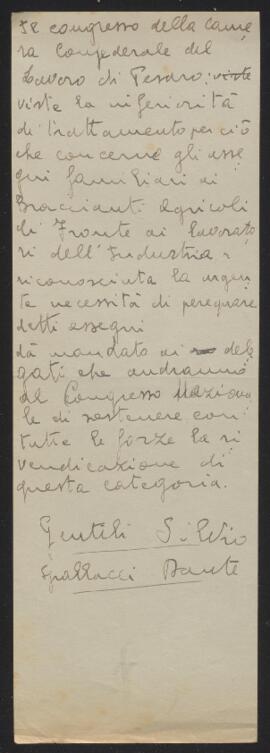 5º congresso della Came
ra Confederale del
Lavoro di Pesaro: viste
viste la inferiorità
di trattamento per ciò
che concerne gli asse
gni famigliari ai
Braccianti Agricoli
di fronte ai lavorato
ri dell'Industria:
riconosciuta la urgen
te necessità di perequare
detti assegni
dà mandato ai dele
gati che andranno
al Congresso Naziona
le di sostenere con
tutte le forze la ri
vendicazione di
questa categoria.
Gentili Silvio
Spallacci Dante